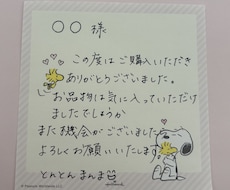 ○○ 様
この度は ご購入いただき
ありがとうございました。
お品物は気に入っていただけ
ましたでしょうか
また機会がございましたら
よろしくお願いいたします
とんとん まんま